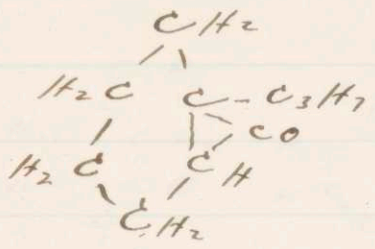 CH2
H2C C - C3H7
CO
H2C CH
CH2